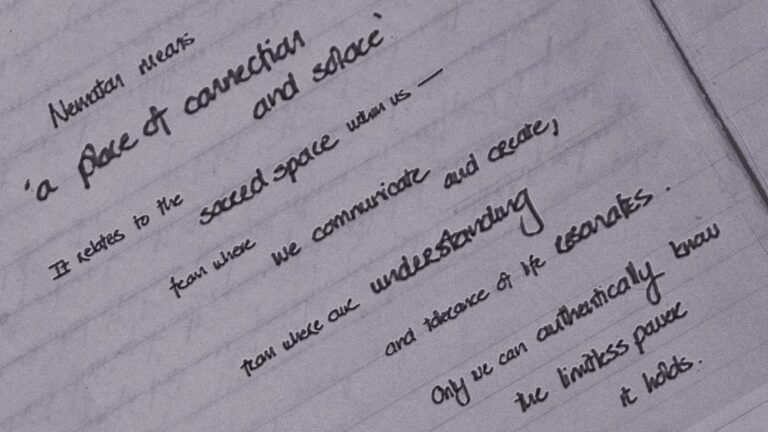 Nematon means
'a place of connection
and solace'
It relates to the sacred space within us —
from where we communicate and create,
from where our understanding
and tolerance of life resonates.
Only we can authentically know
the limitless power
it holds.